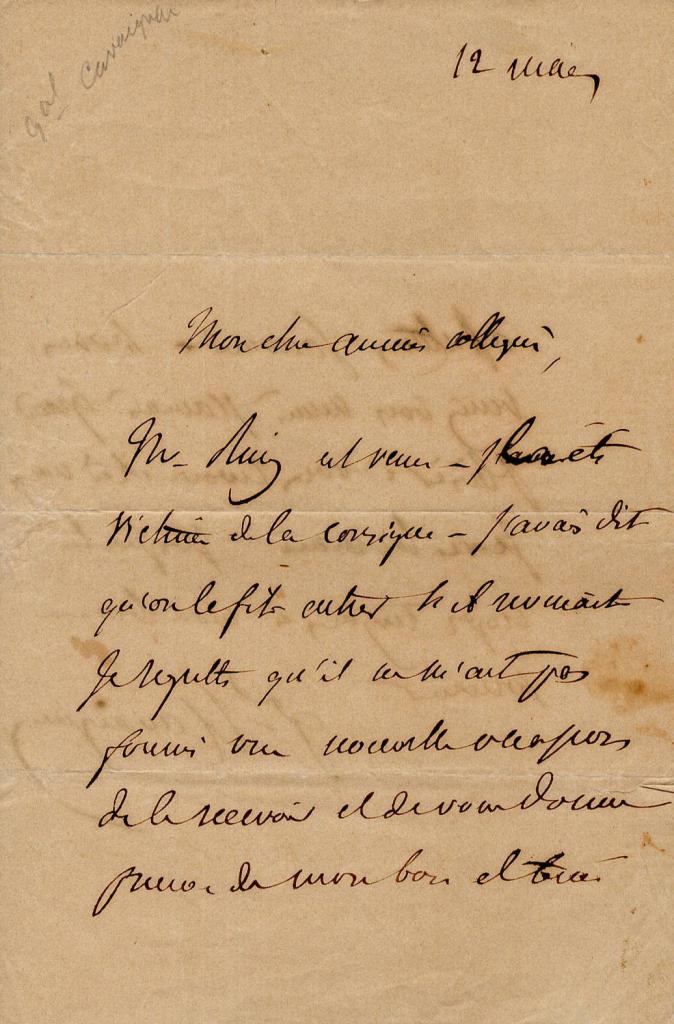 gal Cavaignac
12 mars
Mon cher ancien collègue,
Mr est venu – il a été
victime de la consigne – j'avais dit
qu'on le fit entrer s'il
Je regrette qu'il ne m'ait pas
fourni une nouvelle occasion
de le recevoir et de vous donner
preuve de mon bon et